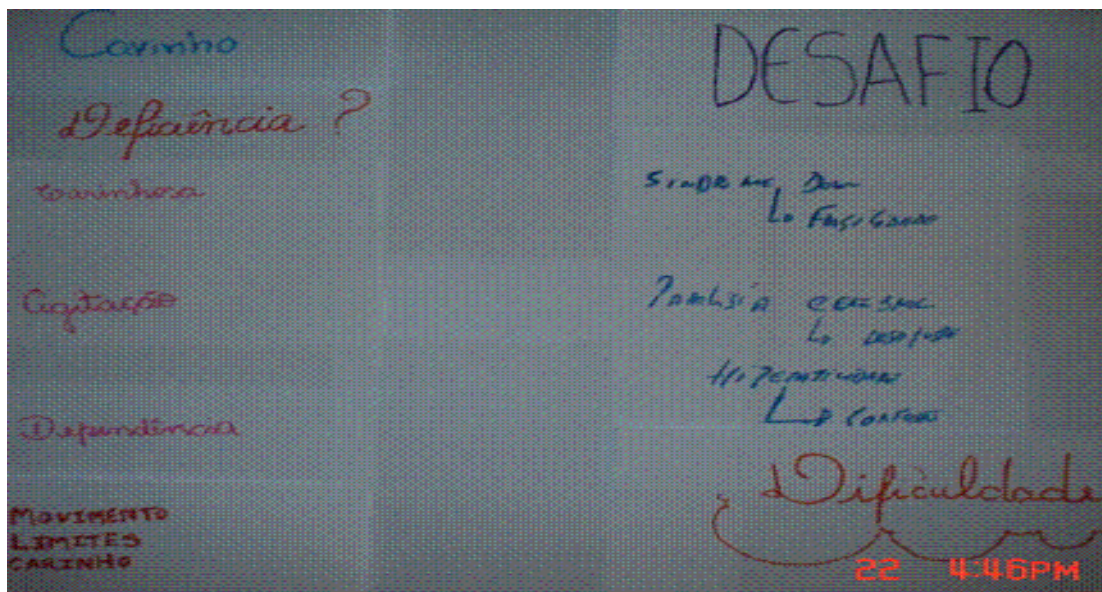 Carinho
Deficiência ?
Carinhosa
Agitação
Dependência
MOVIMENTO
LIMITES
CARINHO
DESAFIO
SINDROME DOWN
PARALISIA CEREBRAL
HIPERATIVIDADE
Dificuldade
22 4:46PM